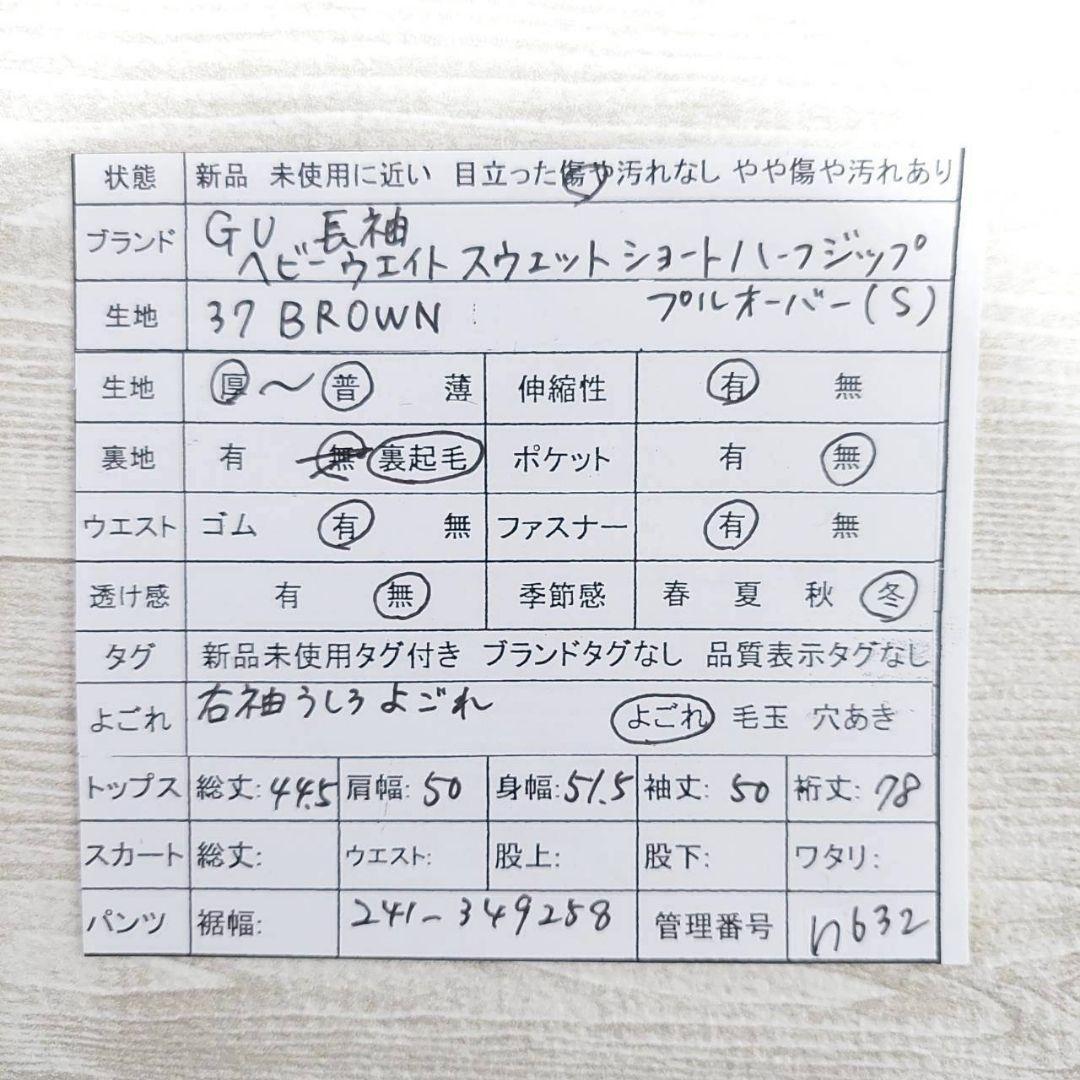 状態 新品 未使用に近い 目立った傷や汚れなし やや傷や汚れあり
ブランド GU 長袖
ヘビーウエイトスウェットショートハーフジップ
プルオーバー(S)
生地 37 BROWN
生地 厚〜普 薄 伸縮性 有 無
裏地 有 無 裏起毛 ポケット 有 無
ウエスト ゴム 有 無 ファスナー 有 無
透け感 有 無 季節感 春 夏 秋 冬
タグ 新品未使用タグ付き ブランドタグなし 品質表示タグなし
よごれ 右袖うしろよごれ よごれ 毛玉 穴あき
トップス 総丈: 44.5 肩幅: 50 身幅: 51.5 袖丈: 50 裄丈: 78
スカート 総丈: ウエスト: 股上: 股下: ワタリ:
パンツ 裾幅: 241-349258 管理番号 n632